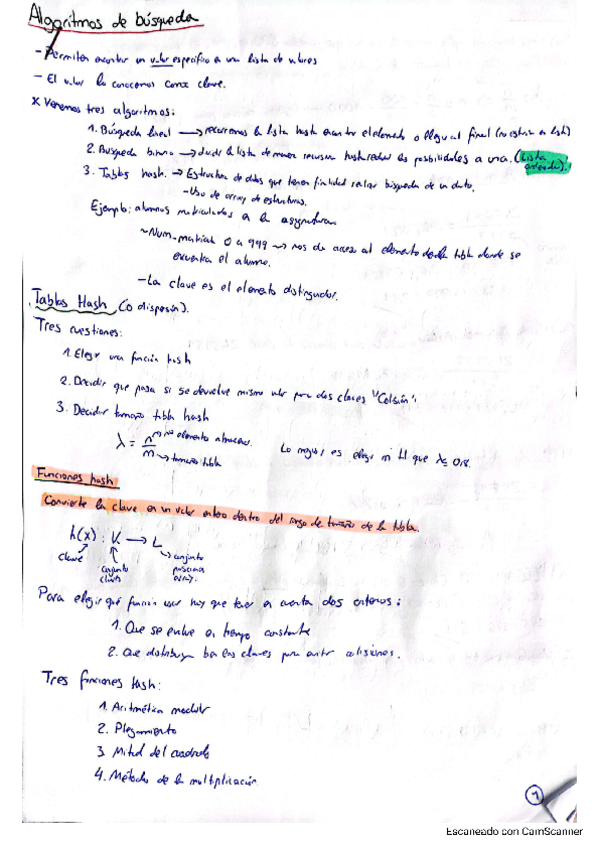 Algoritmos de búsqueda
- Permiten encontrar un valor específico en una lista de valores
- El valor lo conocemos como clave.
x Veremos tres algoritmos:
1. Búsqueda lineal → recorremos la lista hasta encontrar el elemento o llegar al final (no está en la lista)
2. Búsqueda binaria → dividir la lista de manera recursiva hasta reducir las posibilidades a una. (Lista ordenada).
3. Tablas hash. → Estructura de datos que tienen finalidad realizar búsqueda de un dato.
- Uso de array de estructuras.
Ejemplo: alumnos matriculados a la asignatura
~ Num_matrícula 0 a 999 → nos da acceso al elemento de la tabla donde se
encuentra el alumno.
- La clave es el elemento distinguidor.
Tablas Hash (o dispersión).
Tres cuestiones:
1. Elegir una función hash
2. Decidir que pasa si se devuelve mismo valor para dos claves "Colisión".
3. Decidir tamaño tabla hash
λ = n/m → nº elementos almacenados
→ tamaño tabla
Lo mejor es elegir m tal que λ ≤ 0,8.
Funciones hash
Convierte la clave en un valor entero dentro del rango de tamaño de la tabla.
h(x): K → L
clave
conjunto claves
conjunto posiciones array.
Para elegir qué función usar hay que tener en cuenta dos criterios:
1. Que se evalúe en tiempo constante
2. Que distribuya bien las claves para evitar colisiones.
Tres funciones Hash:
1. Aritmética modular
2. Plegamiento
3. Mitad del cuadrado
4. Método de la multiplicación.
1
Escaneado con CamScanner